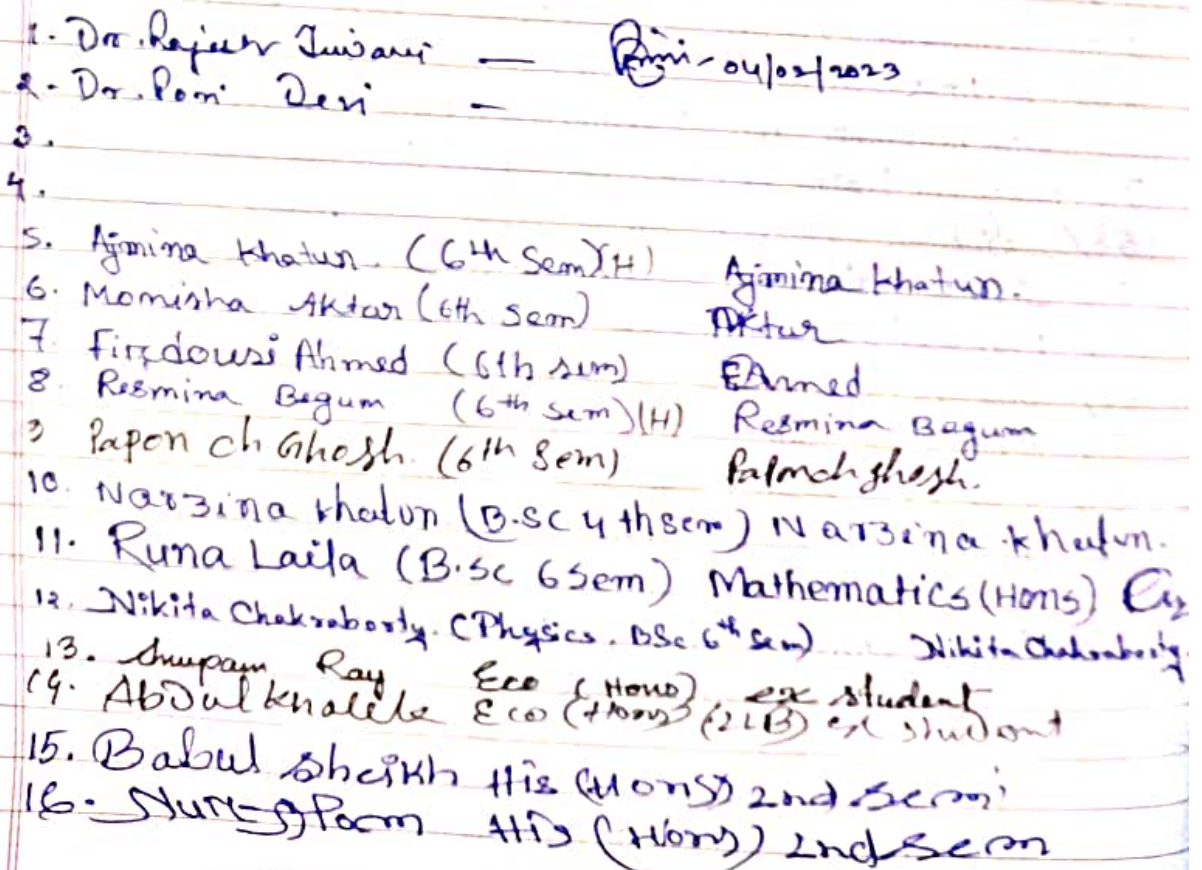 1. Dr. Rajeev Tiwari — 04/02/2023
2. Dr. Pori Devi —
3.
4.
5. Ajmina Khatun. (6th Sem)(H) Ajmina Khatun.
6. Momisha Aktar (6th sem) Aktar
7 Firdousi Ahmed (6th sem) FAhmed
8. Resmina Begum (6th sem)(H) Resmina Begum
9 Papon ch Ghosh. (6th Sem) Paponch ghosh.
10. Narzina Khatun (B.SC 4thsem) Narzina Khatun.
11. Runa Laila (B.sc 6sem) Mathematics (Hons)
12. Nikita Chakraborty. (Physics. BSc 6th Sem) Nikita Chakraborty.
13. Anupam Ray Eco (Hons) ex student
14. Abdul Khaleke Eco (Hons) ex student
15. Babul sheikh His (Hons) 2nd sem
16. His (Hons) 2nd sem